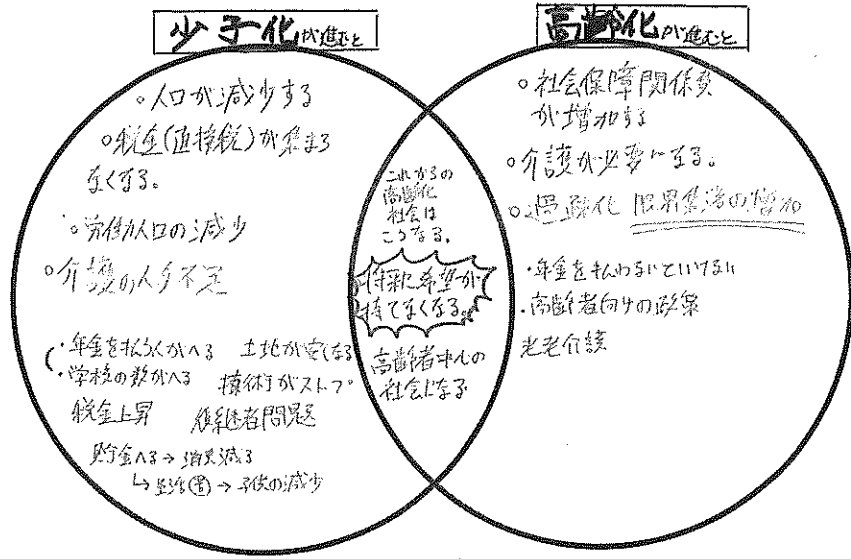 少子化が進むと
高齢化が進むと
○人口が減少する
○税金(直接税)が集まら
なくなる。
○労働人口の減少
○介護の人手不足
・年金を払う人がへる 土地が安くなる
・学校の数がへる 技術がストップ
税金上昇 後継者問題
貯金へる→消費減る
↳生活→子供の減少
これからの
高齢化
社会は
こうなる。
将来に希望が
持てなくなる。
高齢者中心の
社会になる
○社会保障関係費
が増加する
○介護が必要になる。
○過疎化 限界集落の増加
・年金を払わないといけない
・高齢者向けの政策
老老介護